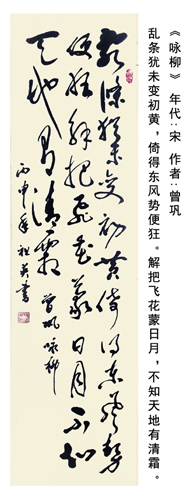 《咏柳》 年代：宋 作者：曾巩
乱条犹未变初黄，倚得东风势便狂。解把飞花蒙日月，不知天地有清霜。
乱条犹未变初黄倚得东风势
便狂解把飞花蒙日月不知
天地有清霜
曾巩咏柳
丙申年祖英书